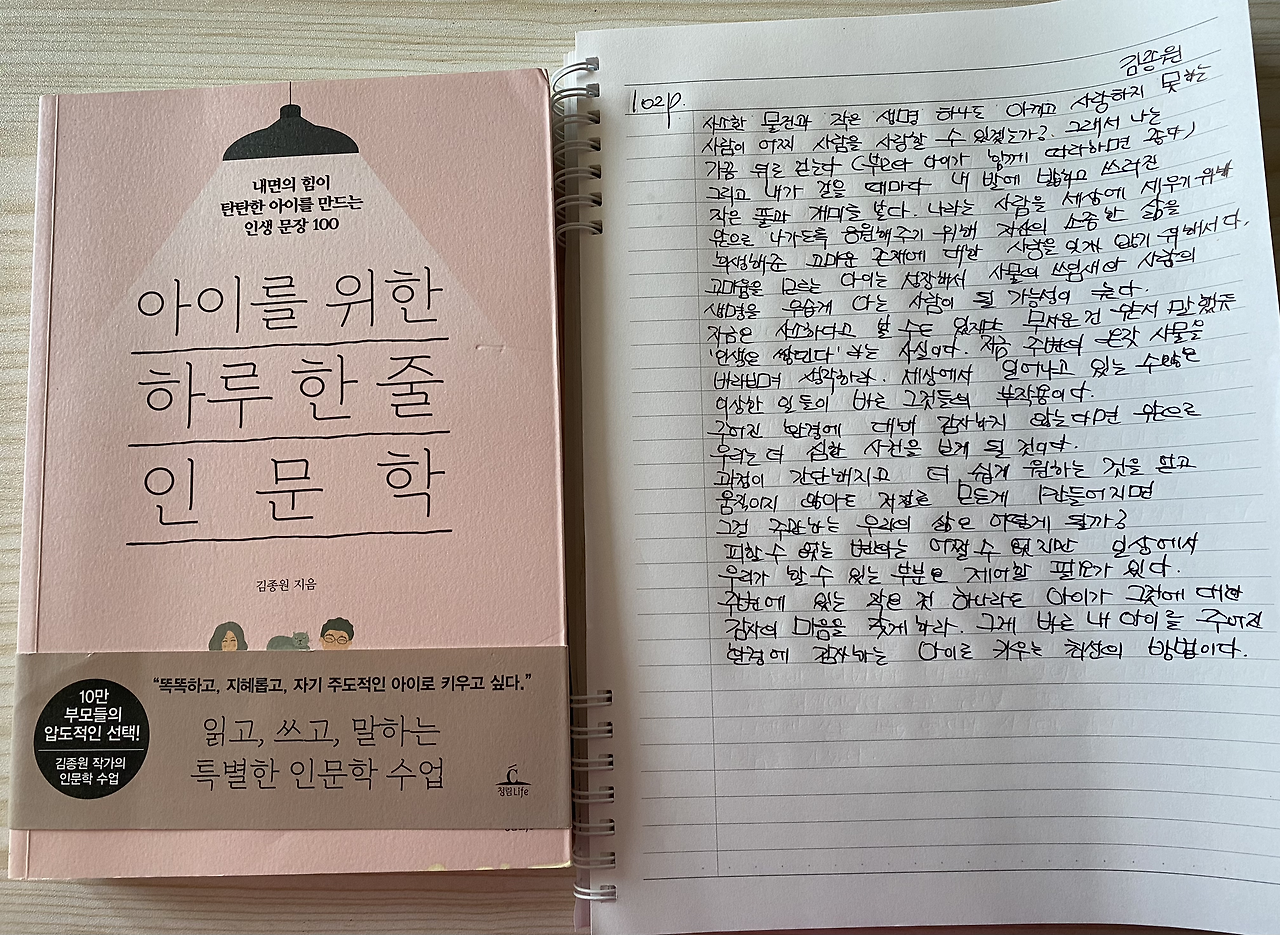 내면의 힘이
탄탄한 아이를 만드는
인생 문장 100
아이를 위한
하루 한 줄
인 문 학
김종원 지음
10만
부모들의
압도적인 선택!
김종원 작가의
인문학 수업
“똑똑하고, 지혜롭고, 자기 주도적인 아이로 키우고 싶다.”
읽고, 쓰고, 말하는
특별한 인문학 수업
청림Life
김종원
102p.
사소한 물건과 작은 생명 하나도 아끼고 사랑하지 못하는
사람이 어찌 사람을 사랑할 수 있겠는가? 그래서 나는
가끔 뒤로 걷는다 (부모와 아이가 함께 따라하면 좋다)
그리고 내가 걸을 때마다 내 발에 밟히고 쓰러진
작은 풀과 개미를 본다. 나라는 사람을 세상에 세우기 위해
앞으로 나가도록 응원해주기 위해 자신의 소중한 삶을
희생해준 고마운 존재에 대한 사랑을 잊지 않기 위해서다.
고마움을 모르는 아이는 성장해서 사물의 쓰임새와 사람의
생명을 우습게 아는 사람이 될 가능성이 높다.
지금은 사소하다고 볼 수도 있지만 무서운 건 앞서 말했듯
'인생은 쌓인다' 는 사실이다. 지금 주변의 온갖 사물을
바라보며 생각하라. 세상에서 일어나고 있는 수많은
이상한 일들이 바로 그것들의 부작용이다.
주어진 환경에 대해 감사하지 않는다면 앞으로
우리는 더 심한 사건을 보게 될 것이다.
과정이 간단해지고 더 쉽게 원하는 것을 얻고
움직이지 않아도 저절로 모든게 만들어지면
그걸 주관하는 우리의 삶은 어떻게 될까?
피할 수 없는 변화는 어쩔 수 없지만 일상에서
우리가 할 수 있는 부분은 제어할 필요가 있다.
주변에 있는 작은 것 하나라도 아이가 그것에 대한
감사의 마음을 갖게 하라. 그게 바로 내 아이를 주어진
환경에 감사하는 아이로 키우는 최선의 방법이다.